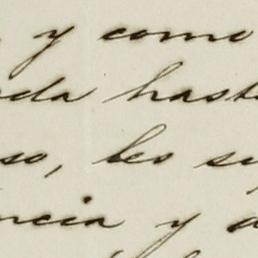 y como
da hasta
so, les su
ncia y a